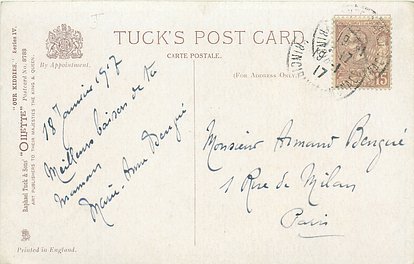 TUCK'S POST CARD
CARTE POSTALE.
(FOR ADDRESS ONLY.)
By Appointment.
Raphael Tuck & Sons' "OILETTE" "OUR KIDDIES." Series IV.
Postcard No.
ART PUBLISHERS TO THEIR MAJESTIES THE KING & QUEEN.
Printed in England.
18 Janvier 1917
Meilleurs baisers de ta
maman
Marie-Anne Benguié
Monsieur Armand Benguié
1 Rue de Milan
Paris
15
17